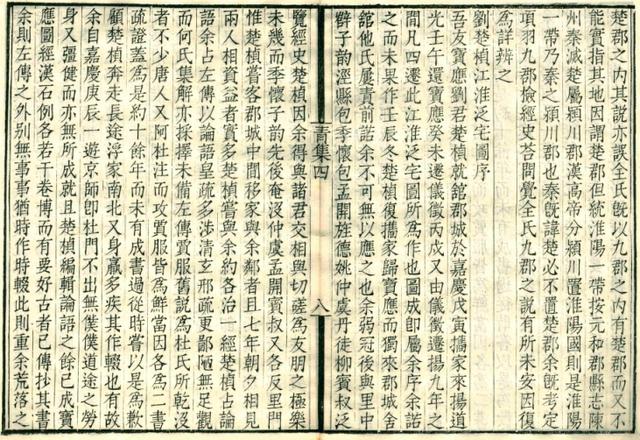 楚郡之內其說亦誤全氏旣以九郡之內有楚郡而又不
能實指其地因謂楚郡但統淮陽一帶按元和郡縣志陳
州秦滅楚屬潁川郡漢高帝分潁川置淮陽國則是淮陽
一帶乃秦之潁川郡也秦旣諱楚必不置楚郡余旣考定
項羽九郡檢經史荅問覺全氏九郡之說有所未安因復
爲詳辨之
劉楚楨江淮泛宅圖序
吾友寶應劉君楚楨就館郡城於嘉慶戊寅攜家來揚道
光壬午還寶應癸未遷儀徵丙戌又由儀徵遷揚九年之
間凡四遷此江淮泛宅圖所爲作也圖成卽屬余序余諾
之而未果作壬辰冬楚楨復攜家歸寶應而獨來郡城舍
館他氏屢責前諾余不可無以應之也余弱冠後與里中
薛子韵涇縣包季懷包孟開旌德姚仲虞丹徒柳賓叔泛
覽經史楚楨因余得與諸君交相與切磋爲友朋之極樂
未幾而季懷子韵先後奄沒仲虞孟開賓叔又各反里門
惟楚楨嘗客郡城中間移家與余鄰者且七年朝夕相見
兩人相資益者實多楚楨嘗與余約各治一經楚楨占論
語余占左傳以論語皇疏多涉淸玄邢疏更鄙陋無足觀
而何氏集解亦採擇未備左傳賈服舊說爲杜氏所乾沒
者不少唐人又阿杜注而攻賈服皆爲鮮當因各爲二書
疏證蓋爲是約十餘年而未有成書過從時嘗以是爲歉
顧楚楨奔走長途浮家南北又身羸多疾其作輟也有故
余自嘉慶庚辰一遊京師卽杜門不出無僕僕道途之勞
身又彊健而亦無所成就且楚楨編輯論語之餘已成寶
應圖經漢石例各若干卷博而有要好古者已傳抄其書
余則左傳之外別無事事猶時作時輟此則重余荒落之
青集四
八